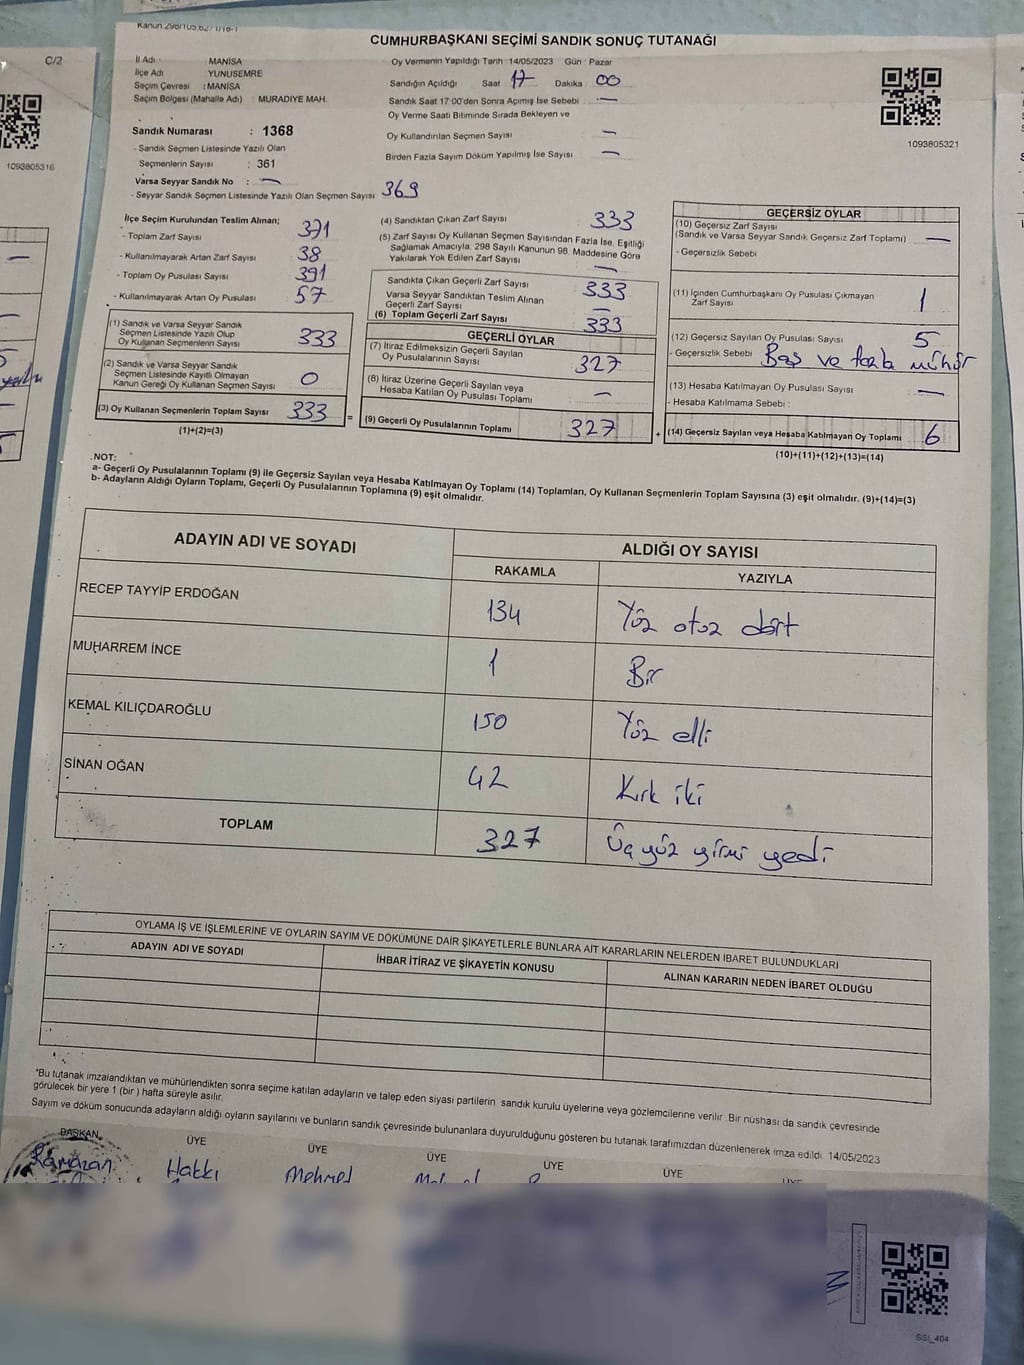 C/2
1093805316
CUMHURBAŞKANI SEÇİMİ SANDIK SONUÇ TUTANAĞI
İl Adı : MANİSA
İlçe Adı : YUNUSEMRE
Seçim Çevresi : MANİSA
Seçim Bölgesi (Mahalle Adı) : MURADİYE MAH.
Sandık Numarası : 1368
- Sandık Seçmen Listesinde Yazılı Olan
Seçmenlerin Sayısı : 361
Varsa Seyyar Sandık No : —
- Seyyar Sandık Seçmen Listesinde Yazılı Olan Seçmen Sayısı: 369
Oy Vermenin Yapıldığı Tarih : 14/05/2023 Gün : Pazar
Sandığın Açıldığı Saat 17 Dakika 00
Sandık Saat 17:00'den Sonra Açımış İse Sebebi : —
Oy Verme Saati Bitiminde Sırada Bekleyen ve
Oy Kullandırılan Seçmen Sayısı —
Birden Fazla Sayım Döküm Yapılmış İse Sayısı —
1093805321
İlçe Seçim Kurulundan Teslim Alınan;
- Toplam Zarf Sayısı 371
- Kullanılmayarak Artan Zarf Sayısı 38
- Toplam Oy Pusulası Sayısı 391
- Kullanılmayarak Artan Oy Pusulası 57
(1) Sandık ve Varsa Seyyar Sandık
Seçmen Listesinde Yazılı Olup
Oy Kullanan Seçmenlerin Sayısı 333
(2) Sandık ve Varsa Seyyar Sandık
Seçmen Listesinde Kayıtlı Olmayan
Kanun Gereği Oy Kullanan Seçmen Sayısı 0
(3) Oy Kullanan Seçmenlerin Toplam Sayısı 333 =
(1)+(2)=(3)
(4) Sandıktan Çıkan Zarf Sayısı 333
(5) Zarf Sayısı Oy Kullanan Seçmen Sayısından Fazla İse, Eşitliği
Sağlamak Amacıyla; 298 Sayılı Kanunun 98. Maddesine Göre
Yakılarak Yok Edilen Zarf Sayısı —
Sandıkta Çıkan Geçerli Zarf Sayısı 333
Varsa Seyyar Sandıktan Teslim Alınan
Geçerli Zarf Sayısı —
(6) Toplam Geçerli Zarf Sayısı 333
GEÇERLİ OYLAR
(7) İtiraz Edilmeksizin Geçerli Sayılan
Oy Pusulalarının Sayısı 327
(8) İtiraz Üzerine Geçerli Sayılan veya
Hesaba Katılan Oy Pusulası Toplamı —
(9) Geçerli Oy Pusulalarının Toplamı 327 +
GEÇERSİZ OYLAR
(10) Geçersiz Zarf Sayısı
(Sandık ve Varsa Seyyar Sandık Geçersiz Zarf Toplamı) —
- Geçersizlik Sebebi
(11) İçinden Cumhurbaşkanı Oy Pusulası Çıkmayan
Zarf Sayısı 1
(12) Geçersiz Sayılan Oy Pusulası Sayısı 5
- Geçersizlik Sebebi Boş ve fazla mühür
(13) Hesaba Katılmayan Oy Pusulası Sayısı —
- Hesaba Katılmama Sebebi :
(14) Geçersiz Sayılan veya Hesaba Katılmayan Oy Toplamı 6
(10)+(11)+(12)+(13)=(14)
NOT:
a- Geçerli Oy Pusulalarının Toplamı (9) ile Geçersiz Sayılan veya Hesaba Katılmayan Oy Toplamı (14) Toplamları, Oy Kullanan Seçmenlerin Toplam Sayısına (3) eşit olmalıdır. (9)+(14)=(3)
b- Adayların Aldığı Oyların Toplamı, Geçerli Oy Pusulalarının Toplamına (9) eşit olmalıdır.
ADAYIN ADI VE SOYADI ALDIĞI OY SAYISI
RAKAMLA YAZIYLA
RECEP TAYYİP ERDOĞAN 134 Yüz otuz dört
MUHARREM İNCE 1 Bir
KEMAL KILIÇDAROĞLU 150 Yüz elli
SİNAN OĞAN 42 Kırk iki
TOPLAM 327 Üç yüz yirmi yedi
OYLAMA İŞ VE İŞLEMLERİNE VE OYLARIN SAYIM VE DÖKÜMÜNE DAİR ŞİKAYETLERLE BUNLARA AİT KARARLARIN NELERDEN IBARET BULUNDUKLARI
ADAYIN ADI VE SOYADI İHBAR İTİRAZ VE ŞİKAYETİN KONUSU ALINAN KARARIN NEDEN İBARET OLDUĞU
"Bu tutanak imzalandıktan ve mühürlendikten sonra seçime katılan adayların ve talep eden siyasi partilerin sandık kurulu üyelerine veya gözlemcilerine verilir. Bir nüshası da sandık çevresinde
görülecek bir yere 1 (bir) hafta süreyle asılır.
Sayım ve döküm sonucunda adayların aldığı oyların sayılarını ve bunların sandık çevresinde bulunanlara duyurulduğunu gösteren bu tutanak tarafımızdan düzenlenerek imza edildi. 14/05/2023
BAŞKAN ÜYE ÜYE ÜYE ÜYE ÜYE
Ramazan Hakkı Mehmed
SSI_404